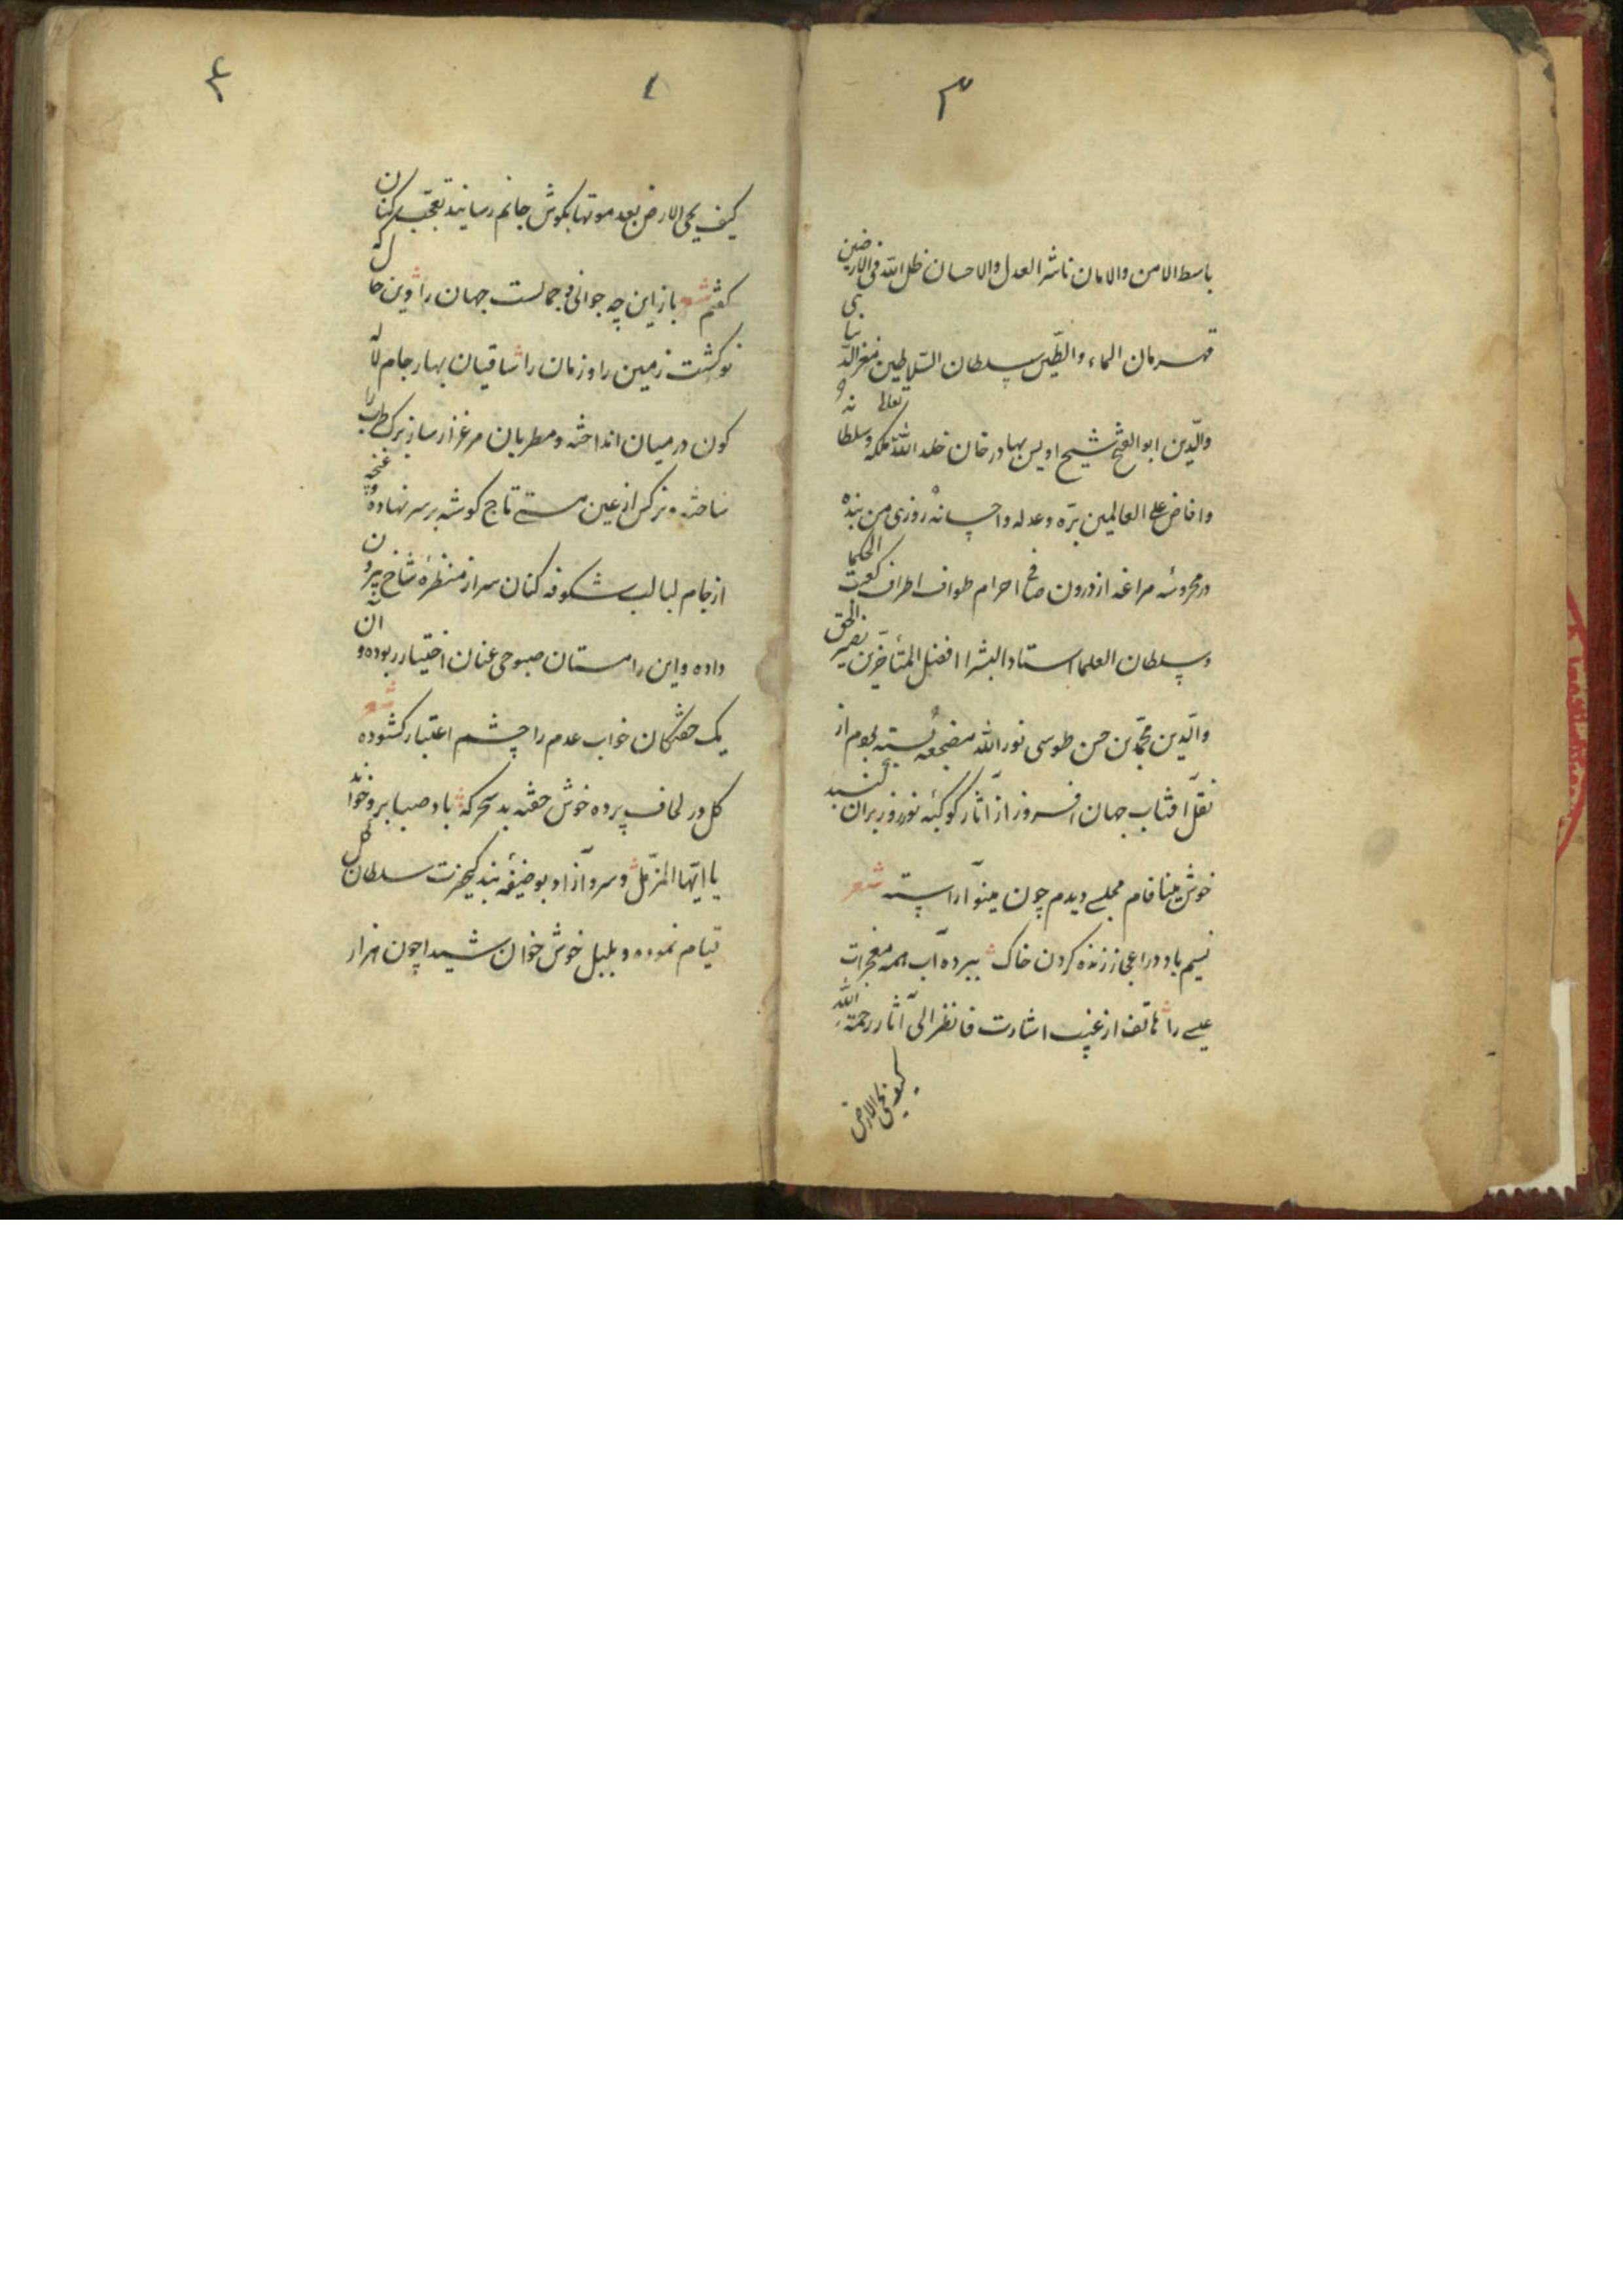 ۳
باسط الامن والامان ناشر العدل والاحسان ظل الله فی الارضین
قهرمان الماء والطین سلطان السلاطین معز الدنیا
والدین ابو الفتح شیخ اویس بهادر خان خلد الله تعالی ملکه وسلطانه
وافاض علی العالمین بره وعدله واحسانه روزی من بنده
در محروسه مراغه از درون صافی احرام طواف اطراف کعبت الحکما
وسلطان العلما استاد البشر افضل المتأخرین نصیر الحق
والدین محمد بن حسن طوسی نور الله مضجعه بسته بودم از
نقل آفتاب جهان افروز از آثار کوکبهٔ نوروز بر آن گنبد
خوش مینا فام مجلسی دیدم چون مینو آراسته شعر
نسیم باد در اعجاز زنده کردن خاک ببرده آب همه معجزات
عیسی را هاتف از غیب اشارت فانظر الی آثار رحمة الله
کیف یحی الارض
۱
۴
کیف یحی الارض بعد موتها بگوش جانم رسانید تعجب کنان
گفتم شعر باز این چه جوانی و جمالست جهان را وین حال که
نو گشت زمین را و زمان را ساقیان بهار جام لاله
گون در میان انداخته و مطربان مرغزار ساز برگ طرب را
ساخته و نرگس از عین مستی تاج گوشه بر سر نهاده و غنچه
از جام لبالب شکوفه کنان سر از منظرهٔ شاخ بیرون
داده و این را مستان صبوحی عنان اختیار ربوده و آن
یک خفتگان خواب عدم را چشم اعتبار گشوده شعر
گل در لحاف پرده خوش خفته بد سحرگه باد صبا برو خواند
یا ایها المزمل و سرو آزاد بوظیفهٔ بندگی حضرت سلطان گل
قیام نموده و بلبل خوش خوان شیدا چون هزار